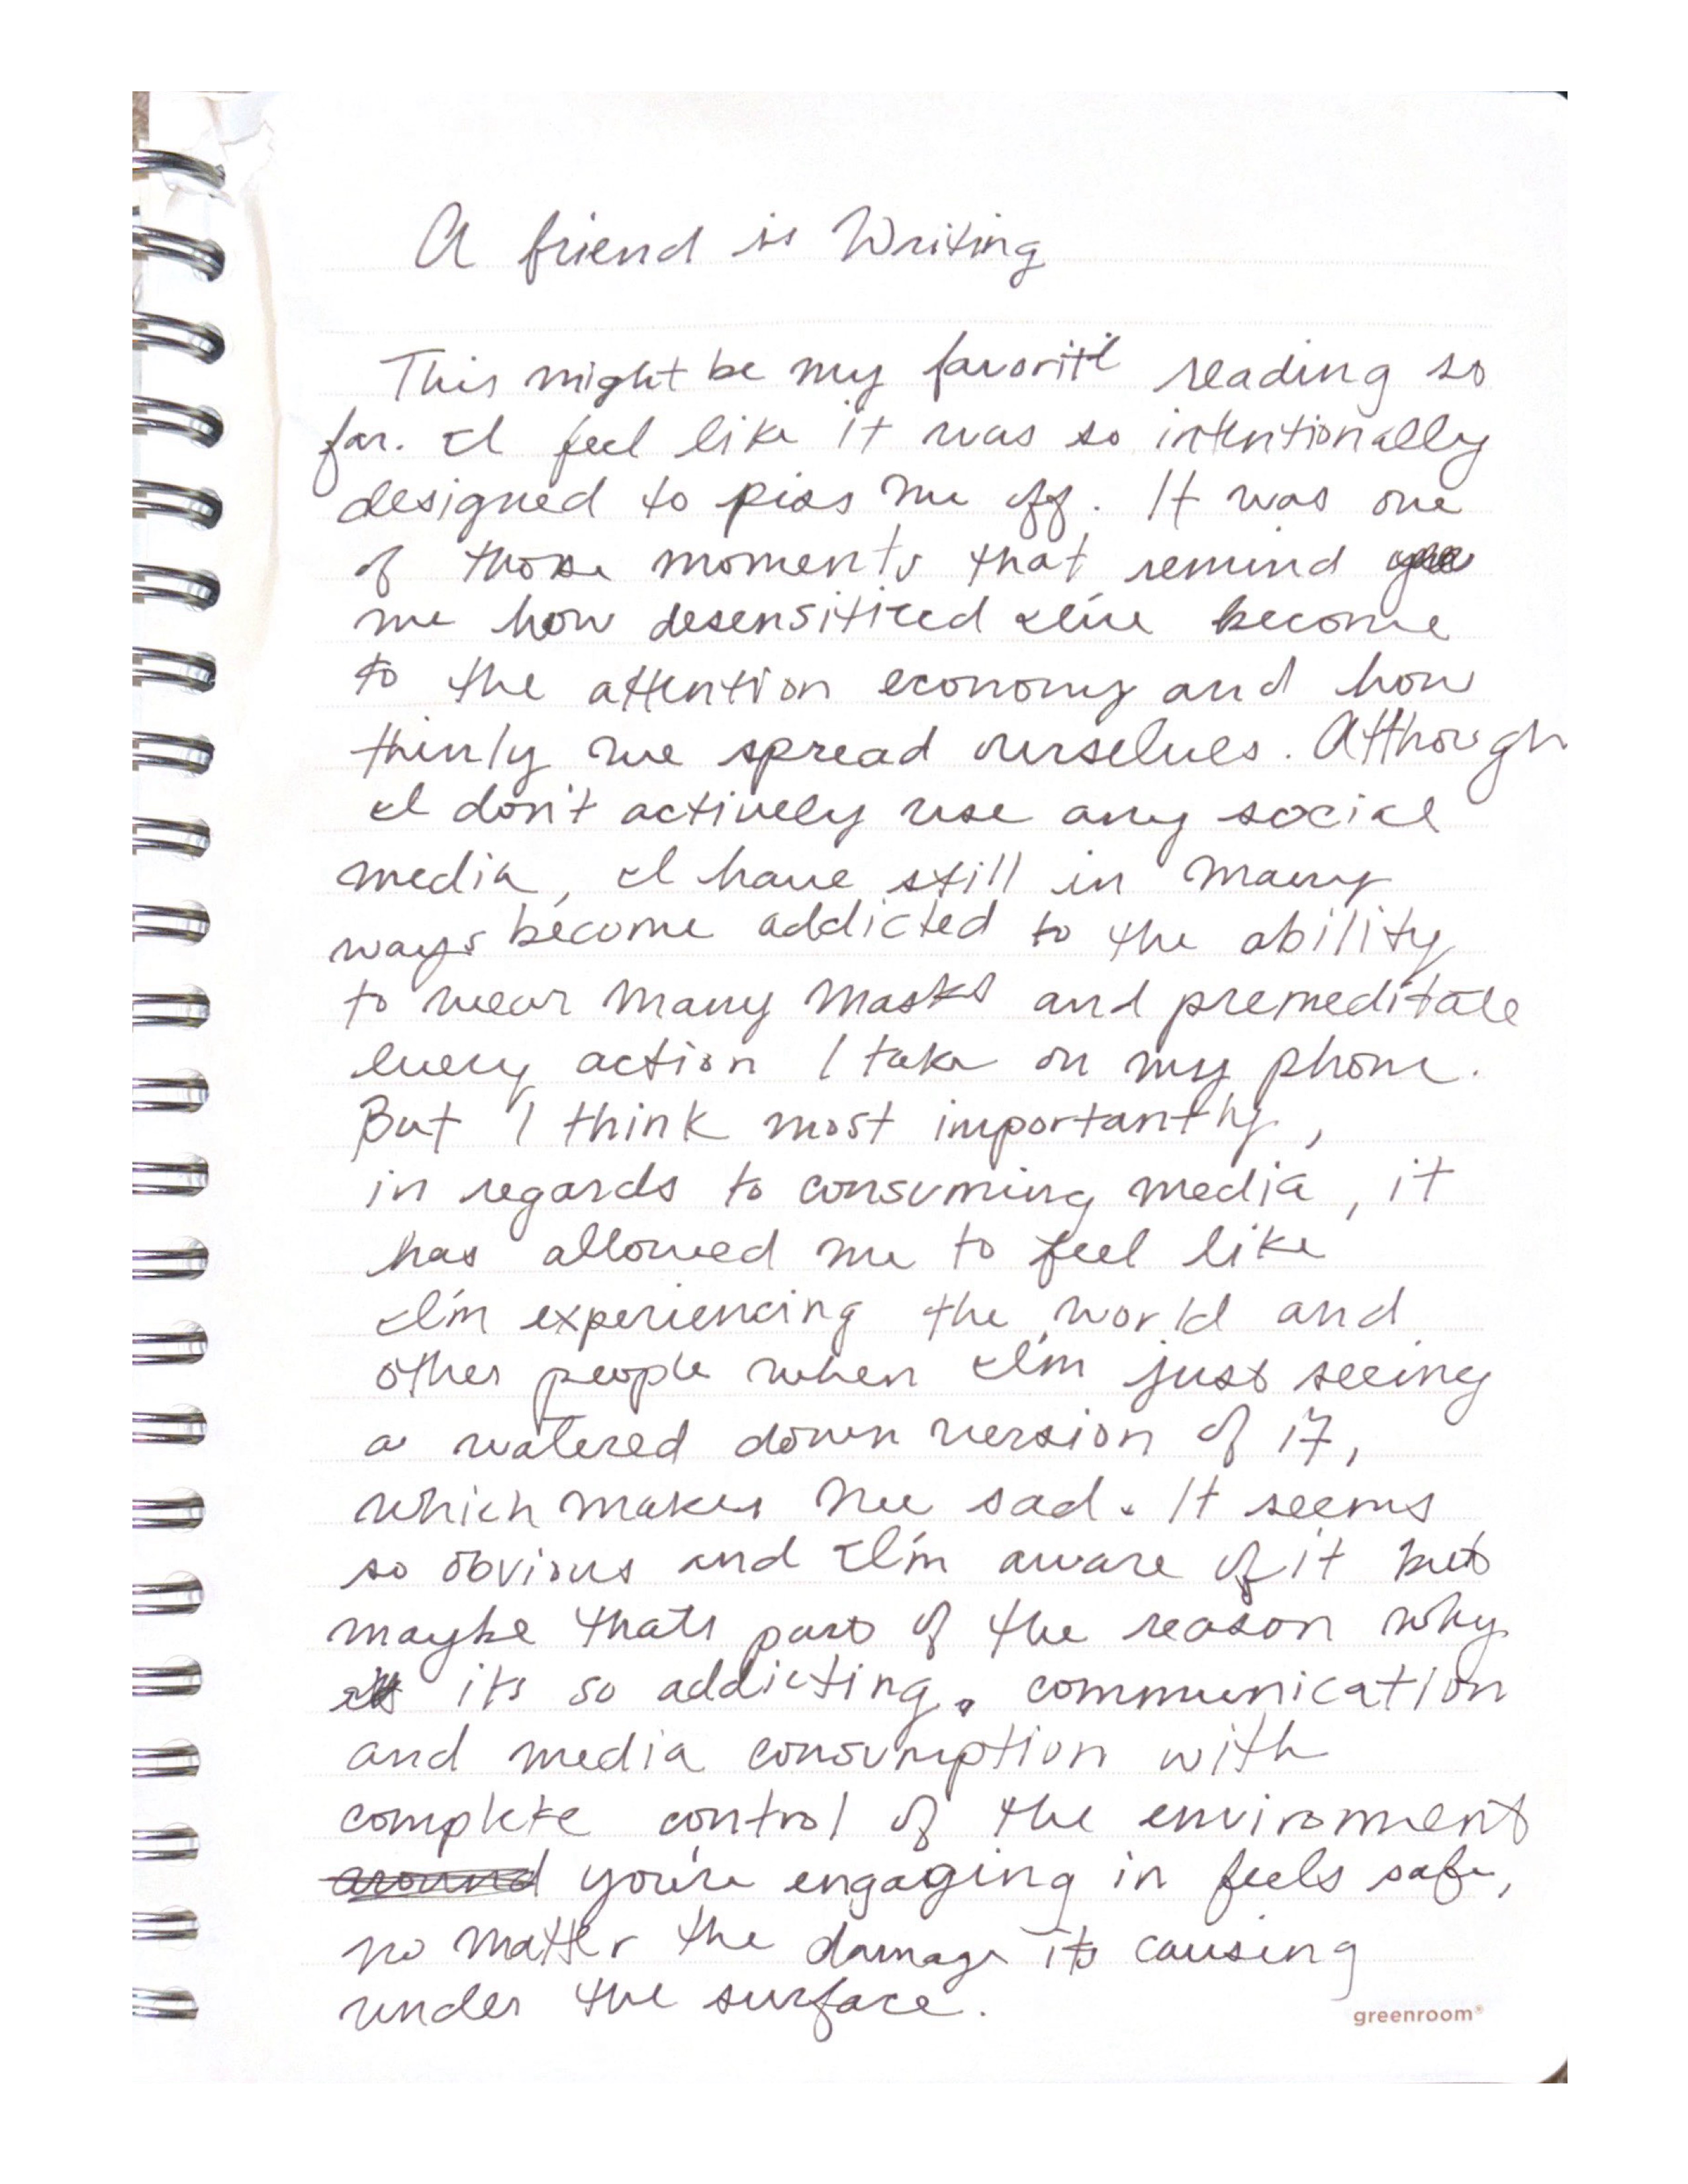 A friend is Writing
This might be my favorite reading so
far. I feel like it was so intentionally
designed to piss me off. It was one
of those moments that remind
me how desensiticed I've become
to the attention economy and how
thinly we spread ourselves. Although
I don't actively use any social
media, I have still in many
ways become addicted to the ability
to wear many masks and premeditate
every action I take on my phone.
But I think most importantly,
in regards to consuming media, it
has allowed me to feel like
I'm experiencing the world and
other people when I'm just seeing
a watered down version of it,
which makes me sad. It seems
so obvious and I'm aware of it but
maybe thats part of the reason why
its so addicting. communication
and media consumption with
complete control of the enviroment
around you're engaging in feels safe,
no matter the damage its causing
under the surface.
greenroom®